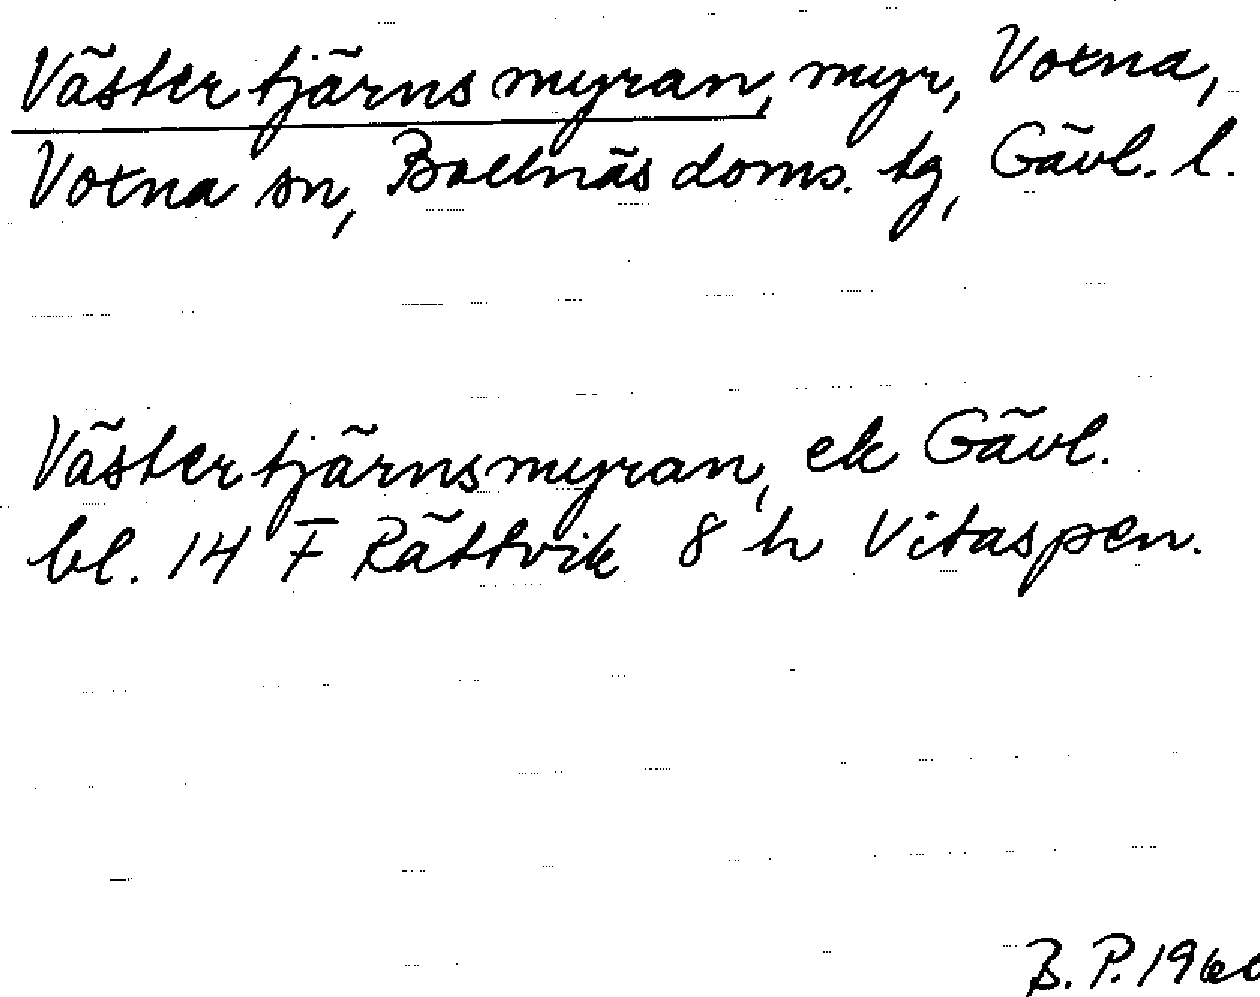 Västertjärnsmyran, myr, Voxna,
Voxna sn, Bollnäs doms. tg, Gävl. l.
Västertjärnsmyran, ek Gävl.
bl. 14 F Rättvik 8 h Vitaspen.
B. P. 1960